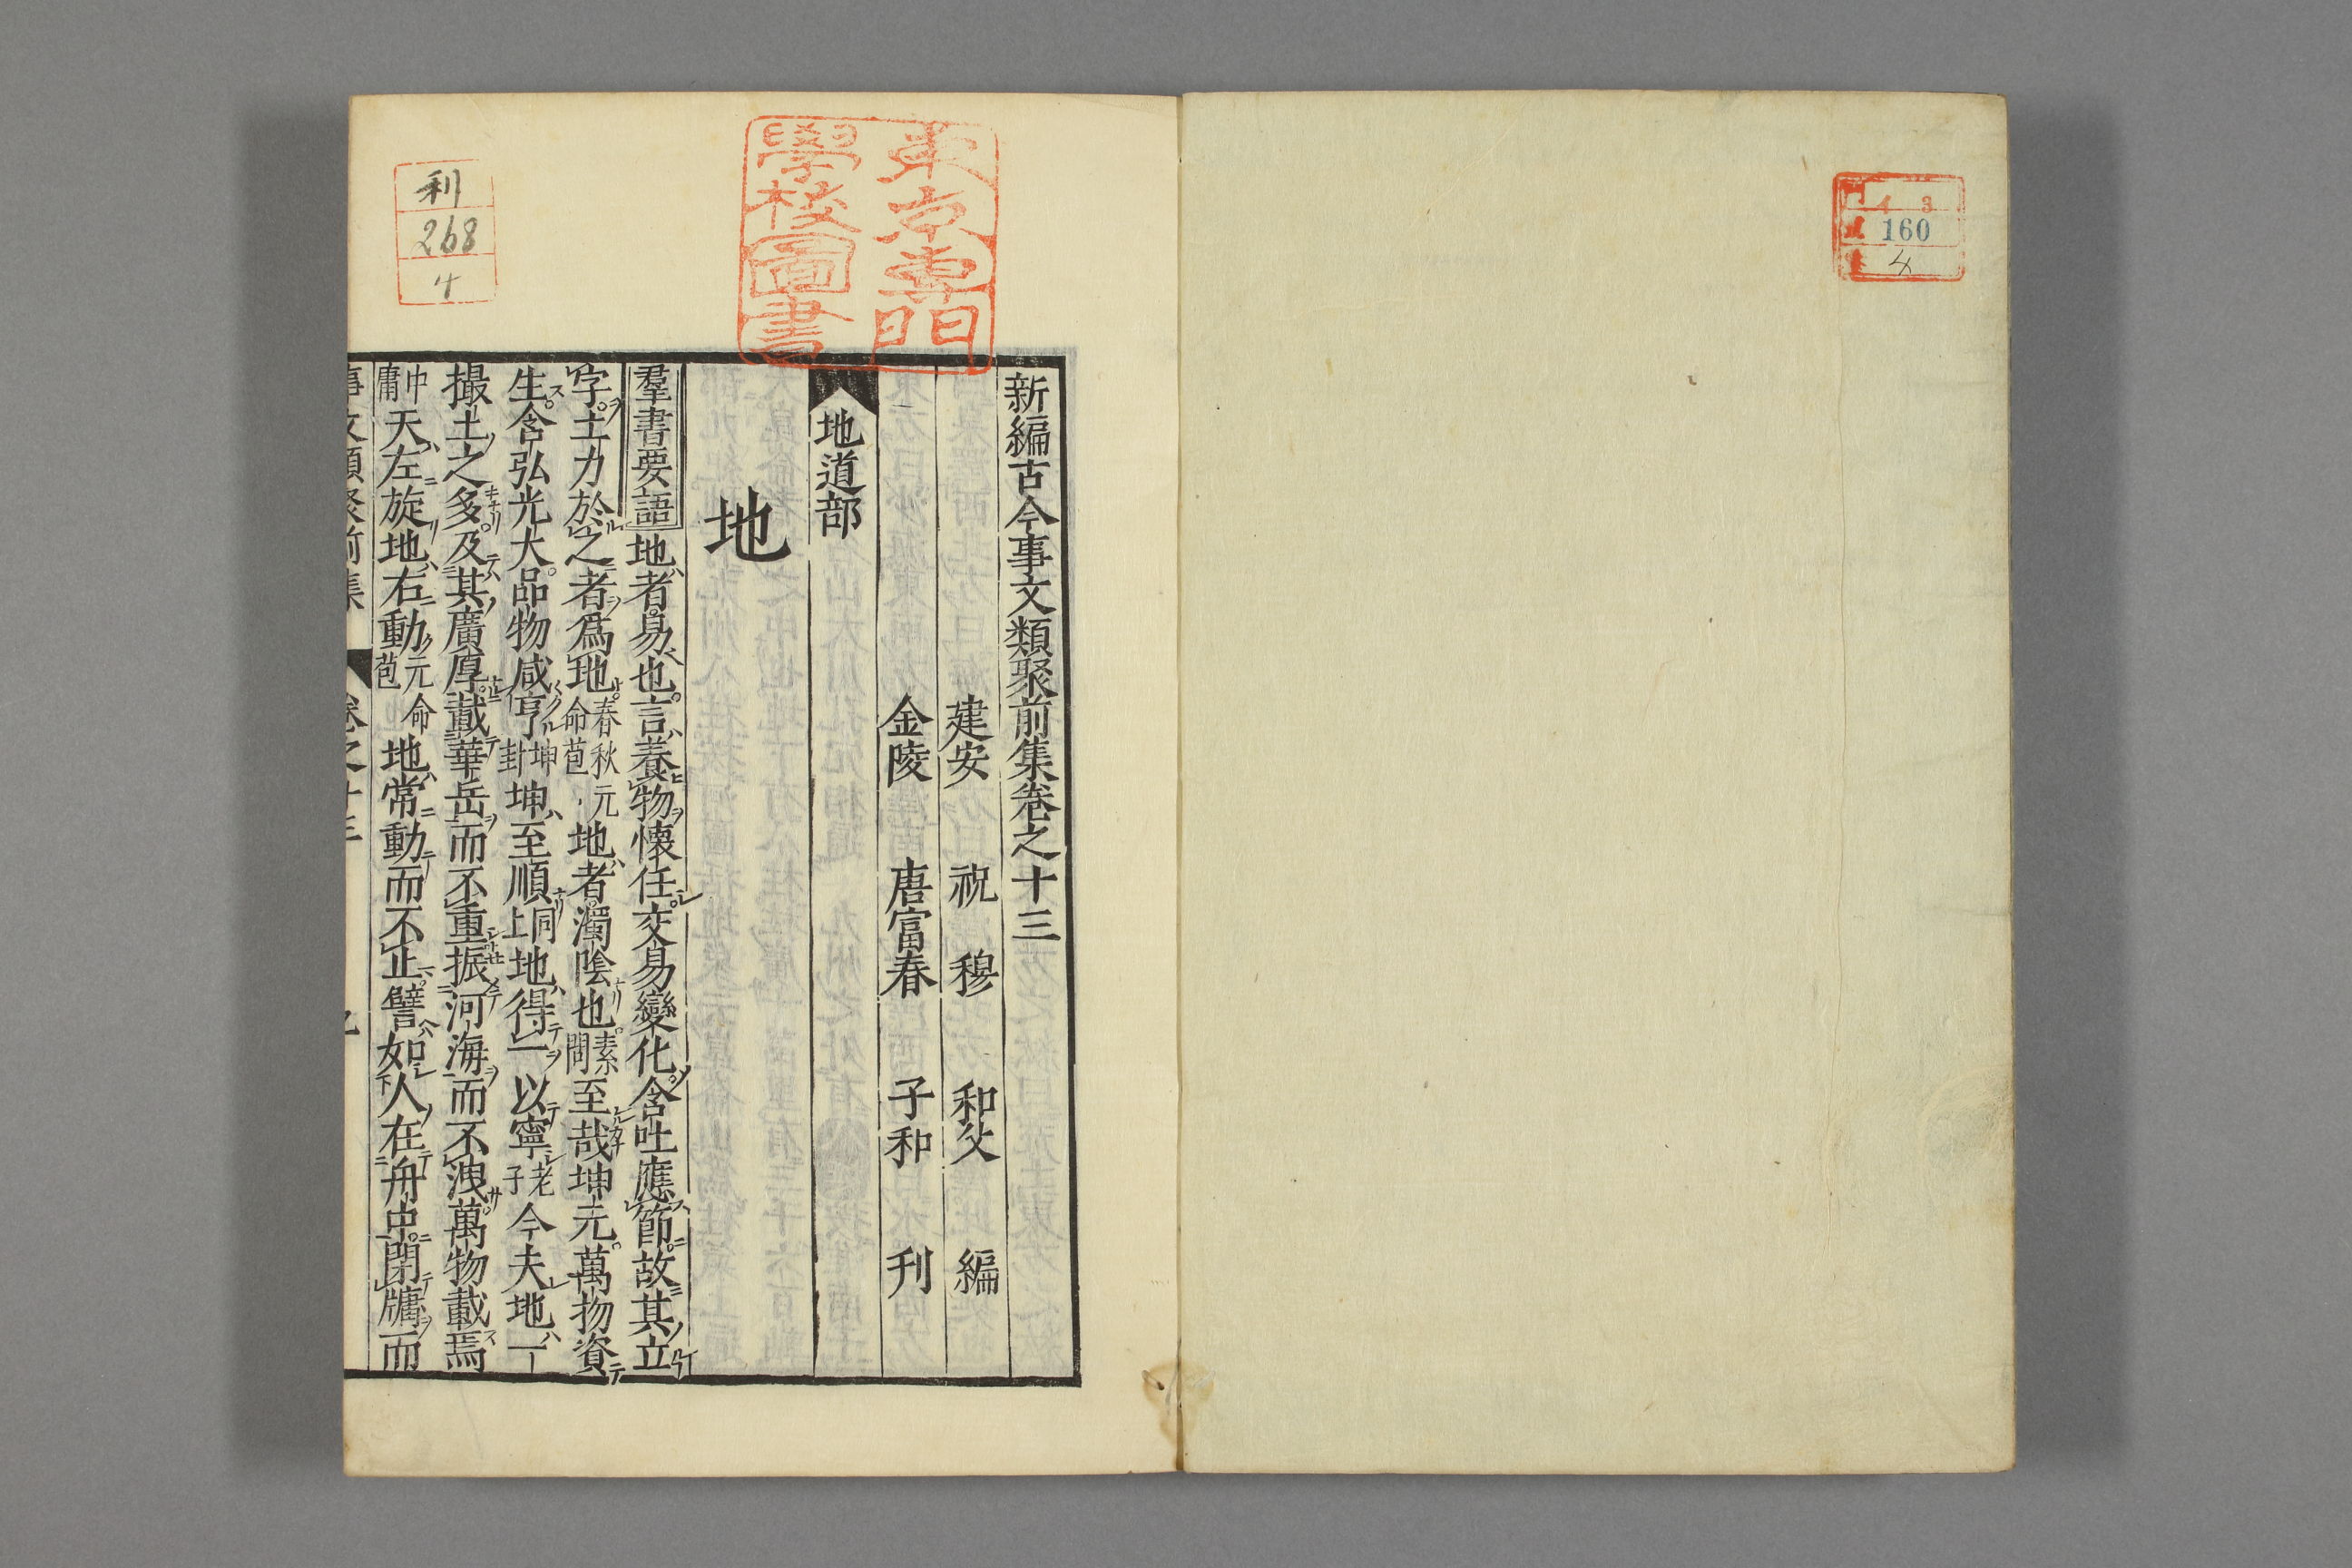 160
4
新編古今事文類聚前集卷之十三
建安 祝 穆 和父 編
金陵 唐富春 子和 刊
地道部
地
羣書要語地者易也言養物懷任交易變化含吐應節故其立
字土力於之者爲地春秋元命苞地者濁陰也素問至哉坤元萬物資
生含弘光大品物咸亨坤卦坤至順同上地得一以寧老子今夫地一
撮土之多及其廣厚載華岳而不重振河海而不洩萬物載焉
中庸天左旋地右動元命苞地常動而不止譬如人在舟中閉牗而
東京專門
學校圖書
利
268
4